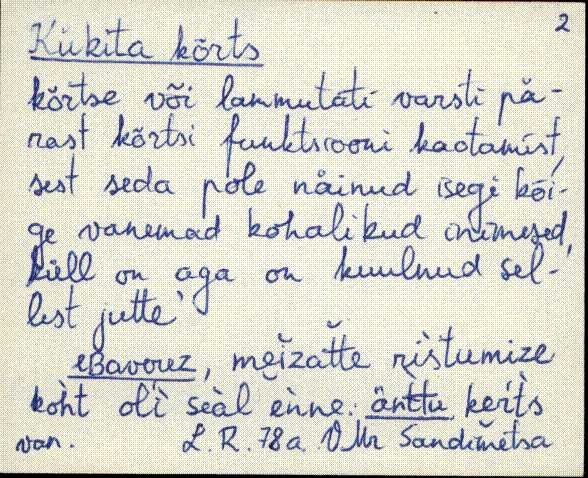 2
Kükita kõrts
kõrtse või lammutati varsti pä-
rast kõrtsi funktsiooni kaotamist,
sest seda pole näinud isegi kõi-
ge vanemad kohalikud inimesed,
küll on aga on kuulnud sel-
lest jutte
, mẽĭzatte ristumize
koht oĺi seàl ènne. änttu keŕts
van. L. R. 78 a.